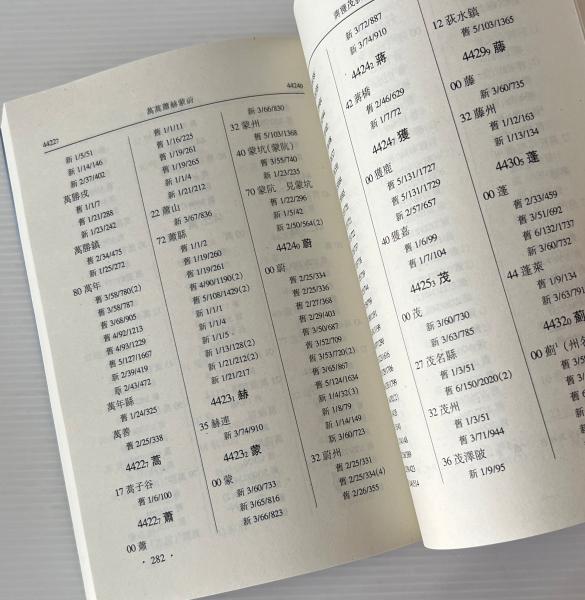 44227
萬蒿蕭赫蒙蔚
44240
新 1/5/51
新 1/14/146
新 2/37/402
萬勝戍
舊 1/1/7
舊 1/21/288
新 1/23/242
萬勝鎮
舊 2/34/475
新 1/25/272
80 萬年
舊 3/58/780(2)
舊 3/58/787
舊 3/68/905
舊 4/92/1213
舊 4/93/1229
舊 5/127/1667
新 2/39/419
新 2/43/472
萬年縣
舊 1/24/325
萬善
舊 2/25/338
44227 蒿
17 蒿子谷
舊 1/6/100
44227 蕭
00 蕭
· 282 ·
舊 1/1/11
舊 1/16/225
舊 1/19/261
舊 1/19/265
新 1/1/4
新 1/21/212
22 蕭山
新 3/67/836
72 蕭縣
舊 1/1/2
舊 1/19/260
舊 1/19/261
舊 4/90/1190(2)
舊 5/108/1429(2)
新 1/1/1
新 1/1/4
新 1/1/5
新 1/13/128(2)
新 1/21/212(2)
新 1/21/217
44231 赫
35 赫連
新 3/74/910
44232 蒙
00 蒙
新 3/60/733
新 3/65/816
新 3/66/823
新 3/66/830
32 蒙州
舊 5/103/1368
40 蒙坑(蒙阬)
舊 3/55/740
新 1/23/235
70 蒙阬 見蒙坑
舊 1/22/296
新 1/5/42
新 2/50/564(2)
44240 蔚
00 蔚
舊 2/25/334
舊 2/25/336
舊 2/27/368
舊 2/29/403
舊 3/50/687
舊 3/52/709
舊 3/53/720(2)
舊 3/65/867
舊 5/124/1634
新 1/4/32(3)
新 1/8/79
新 1/14/149
新 3/60/723
32 蔚州
舊 2/25/331
舊 2/25/334(4)
舊 2/26/355
新 3/72/887
新 3/74/910
44242 蔣
42 蔣橋
舊 2/46/629
新 1/7/72
44247 獲
00 獲鹿
舊 5/131/1727
舊 5/131/1729
新 2/57/657
40 獲嘉
舊 1/6/99
舊 1/7/104
44253 茂
00 茂
新 3/60/730
新 3/63/785
27 茂名縣
舊 1/3/51
舊 6/150/2020(2)
32 茂州
舊 1/3/51
舊 3/71/944
36 茂澤陂
新 1/9/95
12 荻水鎮
舊 5/103/1365
44299 藤
00 藤
新 3/60/735
32 藤州
舊 1/12/163
新 1/13/134
44305 蓬
00 蓬
舊 2/33/459
舊 3/51/692
舊 6/132/1737
新 3/60/732
44 蓬萊
舊 1/9/134
新 3/63/791
44320 薊
00 薊¹